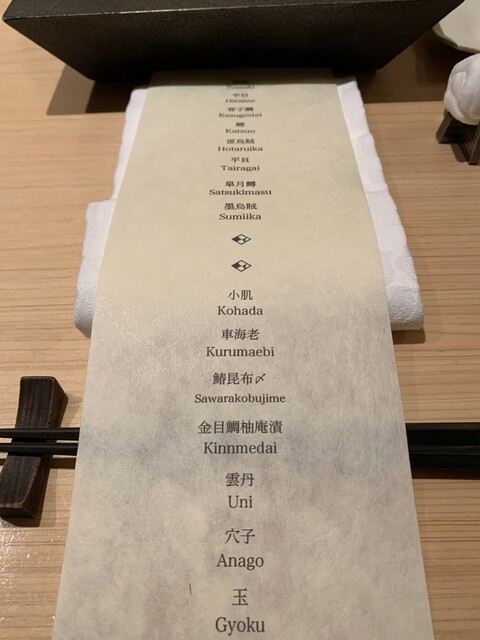 Hirame
春子鯛
Kasugodai
鰹
Katsuo
Hotaruika
平貝
Tairagai
皐月鱒
Satsukimasu
墨烏賊
Sumiika
小肌
Kohada
車海老
Kurumaebi
鰆昆布〆
Sawarakobujime
金目鯛柚庵漬
Kinnmedai
雲丹
Uni
穴子
Anago
玉
Gyoku